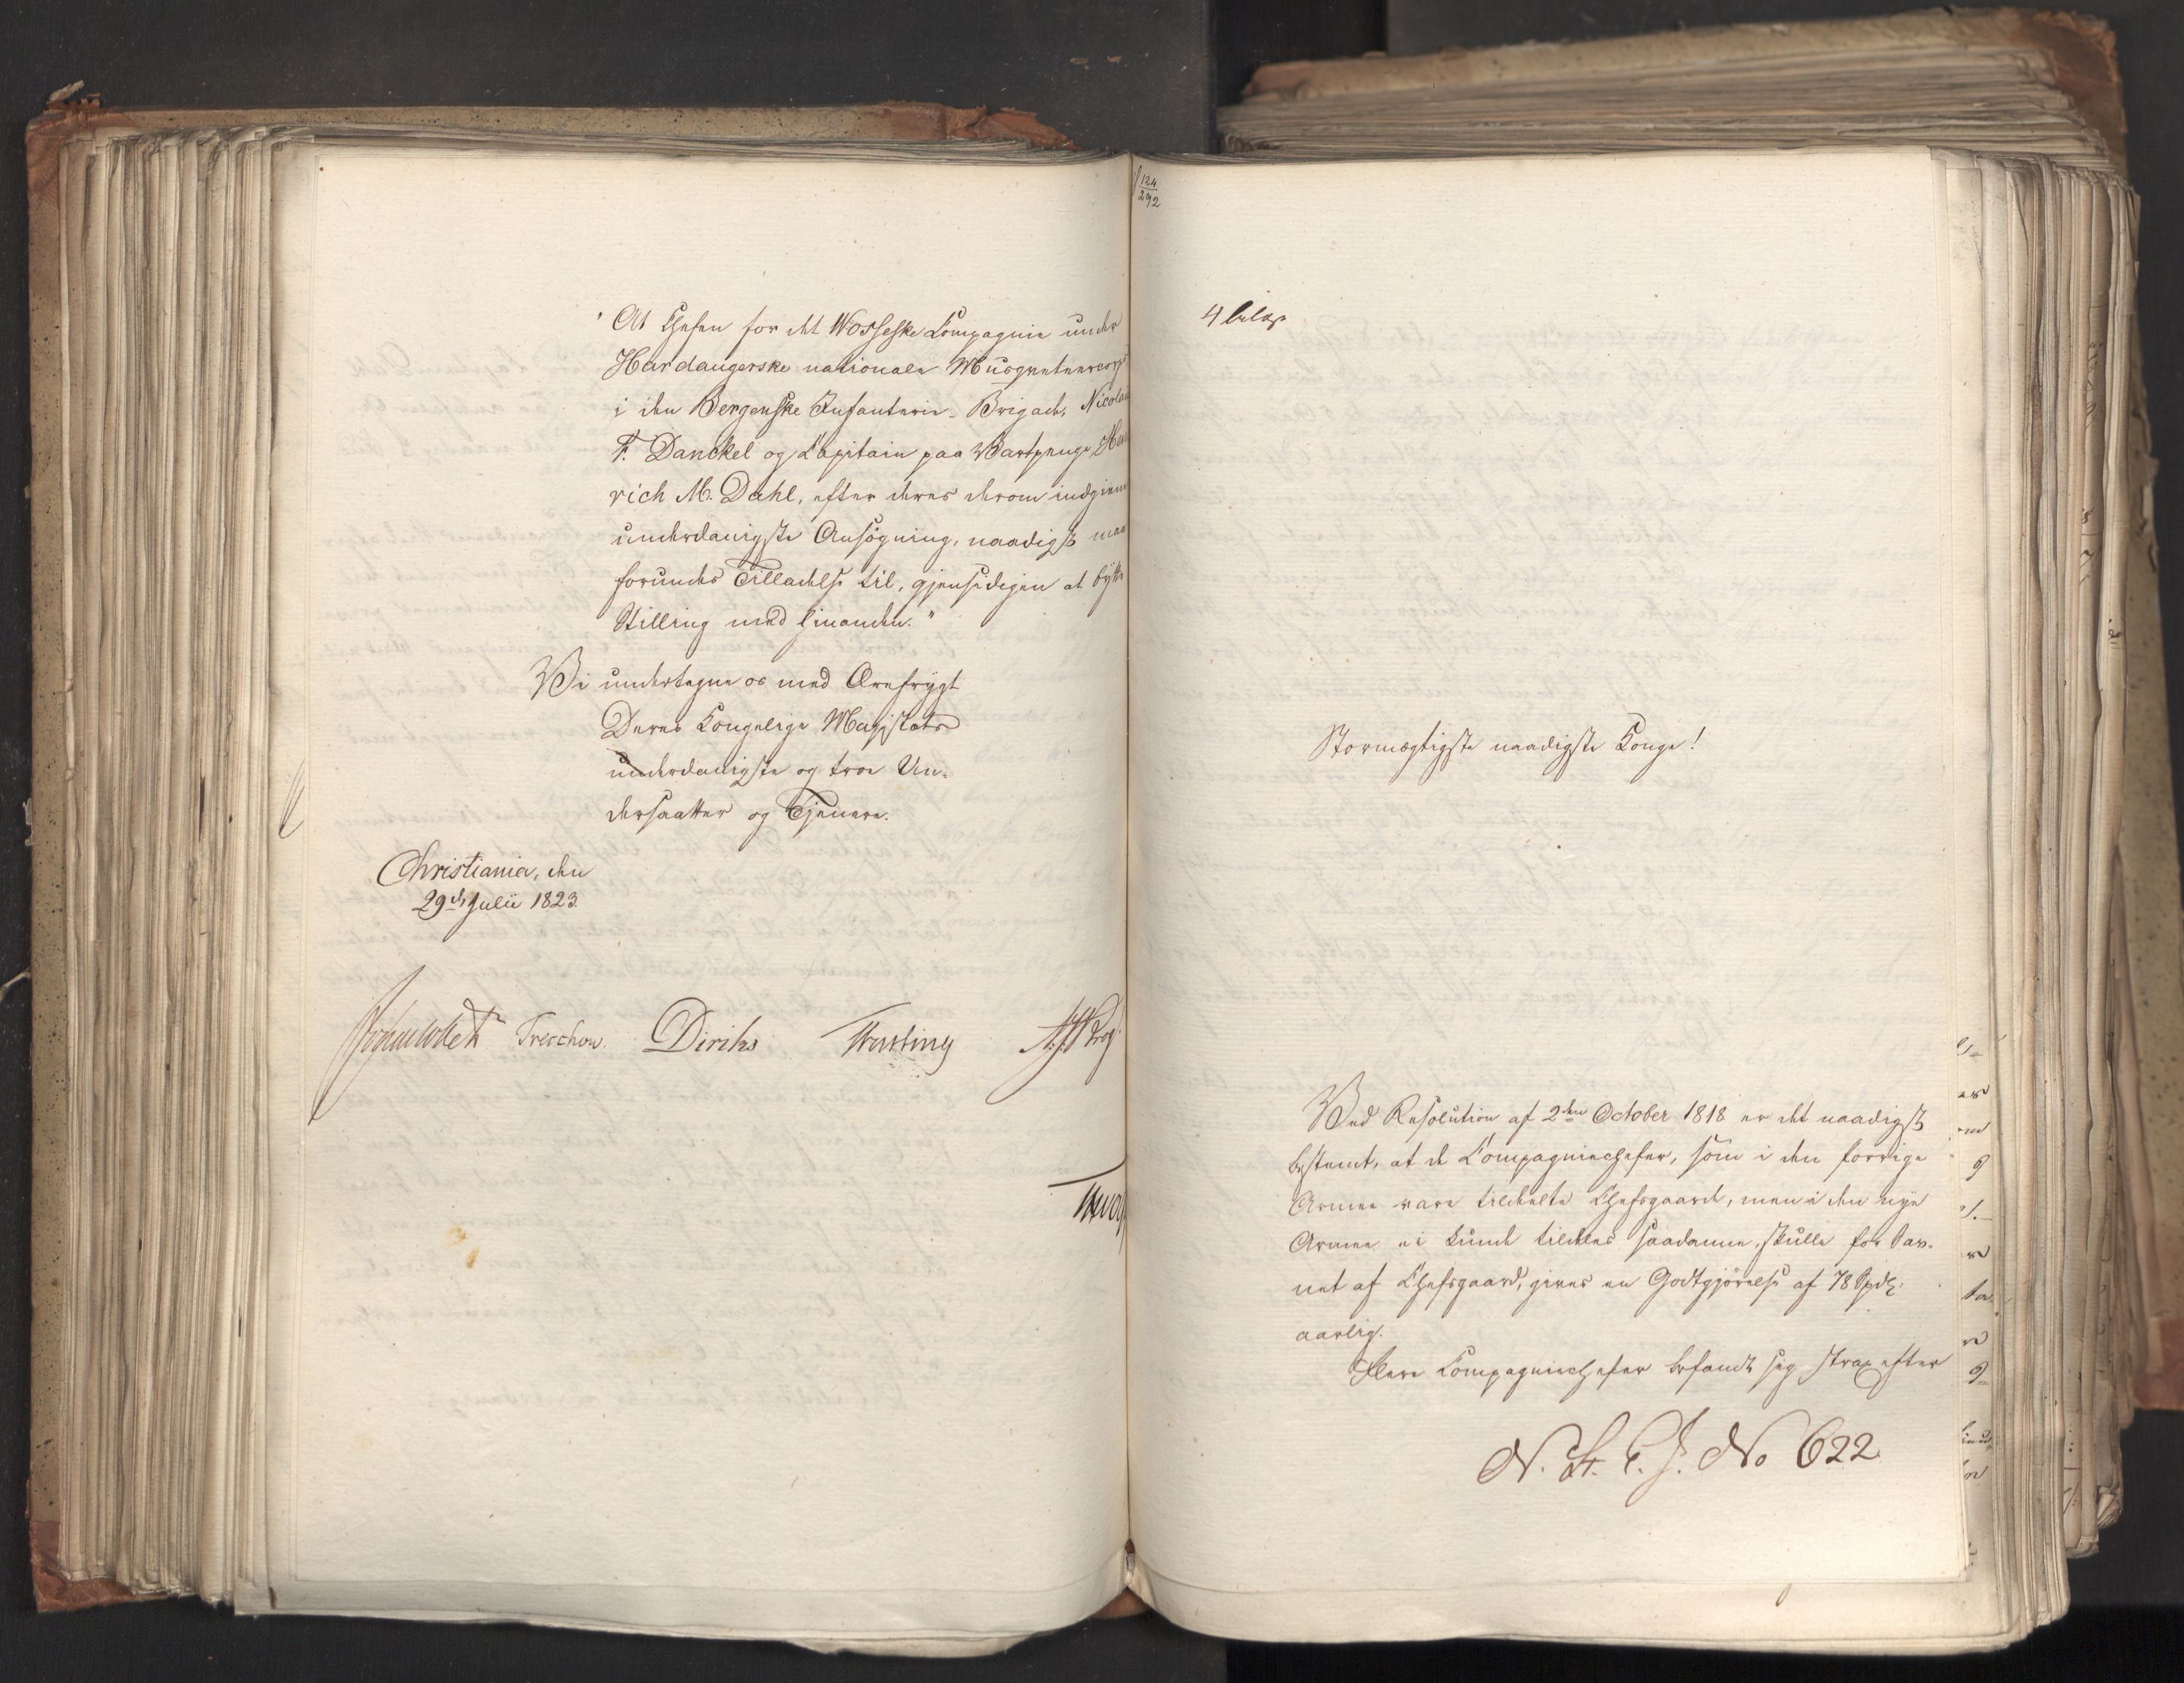 "At Chefen for det Wosseske Compagnie under
Hardangerske nationale Musqueteercorps
i den Bergenske Infanterie-Brigade, Nicolai
F. Danckel og Capitain paa Vartpenge,
rich M. Dahl, efter deres derom indgivne
underdanigste Ansøgning, naadigst maa
forundes Tilladelse til, gjensidigen at bytte
Stilling med hinanden."
Vi undertegne os med Ærefrygt
Deres Kongelige Majestæts
underdanigste og troe Un-
dersaatter og Tjenere.
Christiania, den
29de Julii 1823.
Treschow. Diriks Fasting
124
292
4 bilag
Stormægtigste naadigste Konge!
Ved Resolution af 2den October 1818 er det naadigst
bestemt, at de Compagniechefer, som i den forrige
Armee vare tildeelte Chefsgaarde, men i den nye
Armee ei kunde tildeles saadanne, skulle for Sav-
net af Chefsgaard, gives en Godtgjørelse af 78 Spdlr.
aarlig.
Flere Compagniechefer befandt sig strax efter
N. St. E. J. No 622.